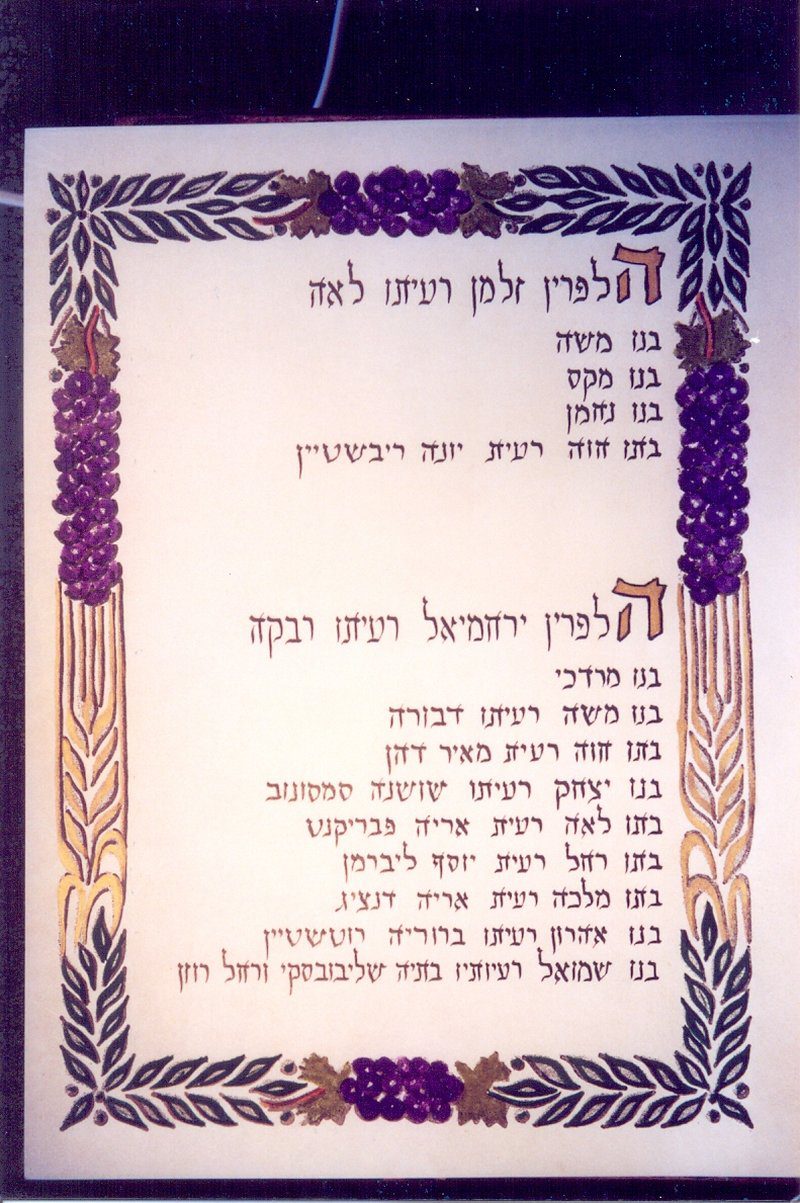 הלפרין זלמן רעיתו לאה
בנו משה
בנו מקס
בנו נחמן
בתו חוה רעית יונה ריבשטיין
הלפרין ירחמיאל רעיתו רבקה
בנו מרדכי
בנו משה רעיתו דבורה
בתו חוה רעית מאיר דהן
בנו יצחק רעיתו שושנה סמסונוב
בתו לאה רעית אריה פבריקנט
בתו רחל רעית יוסף ליברמן
בתו מלכה רעית אריה דנציג
בנו אהרון רעיתו ברוריה רוטשטיין
בנו שמואל רעיותיו בתיה שליבובסקי ורחל רוזן